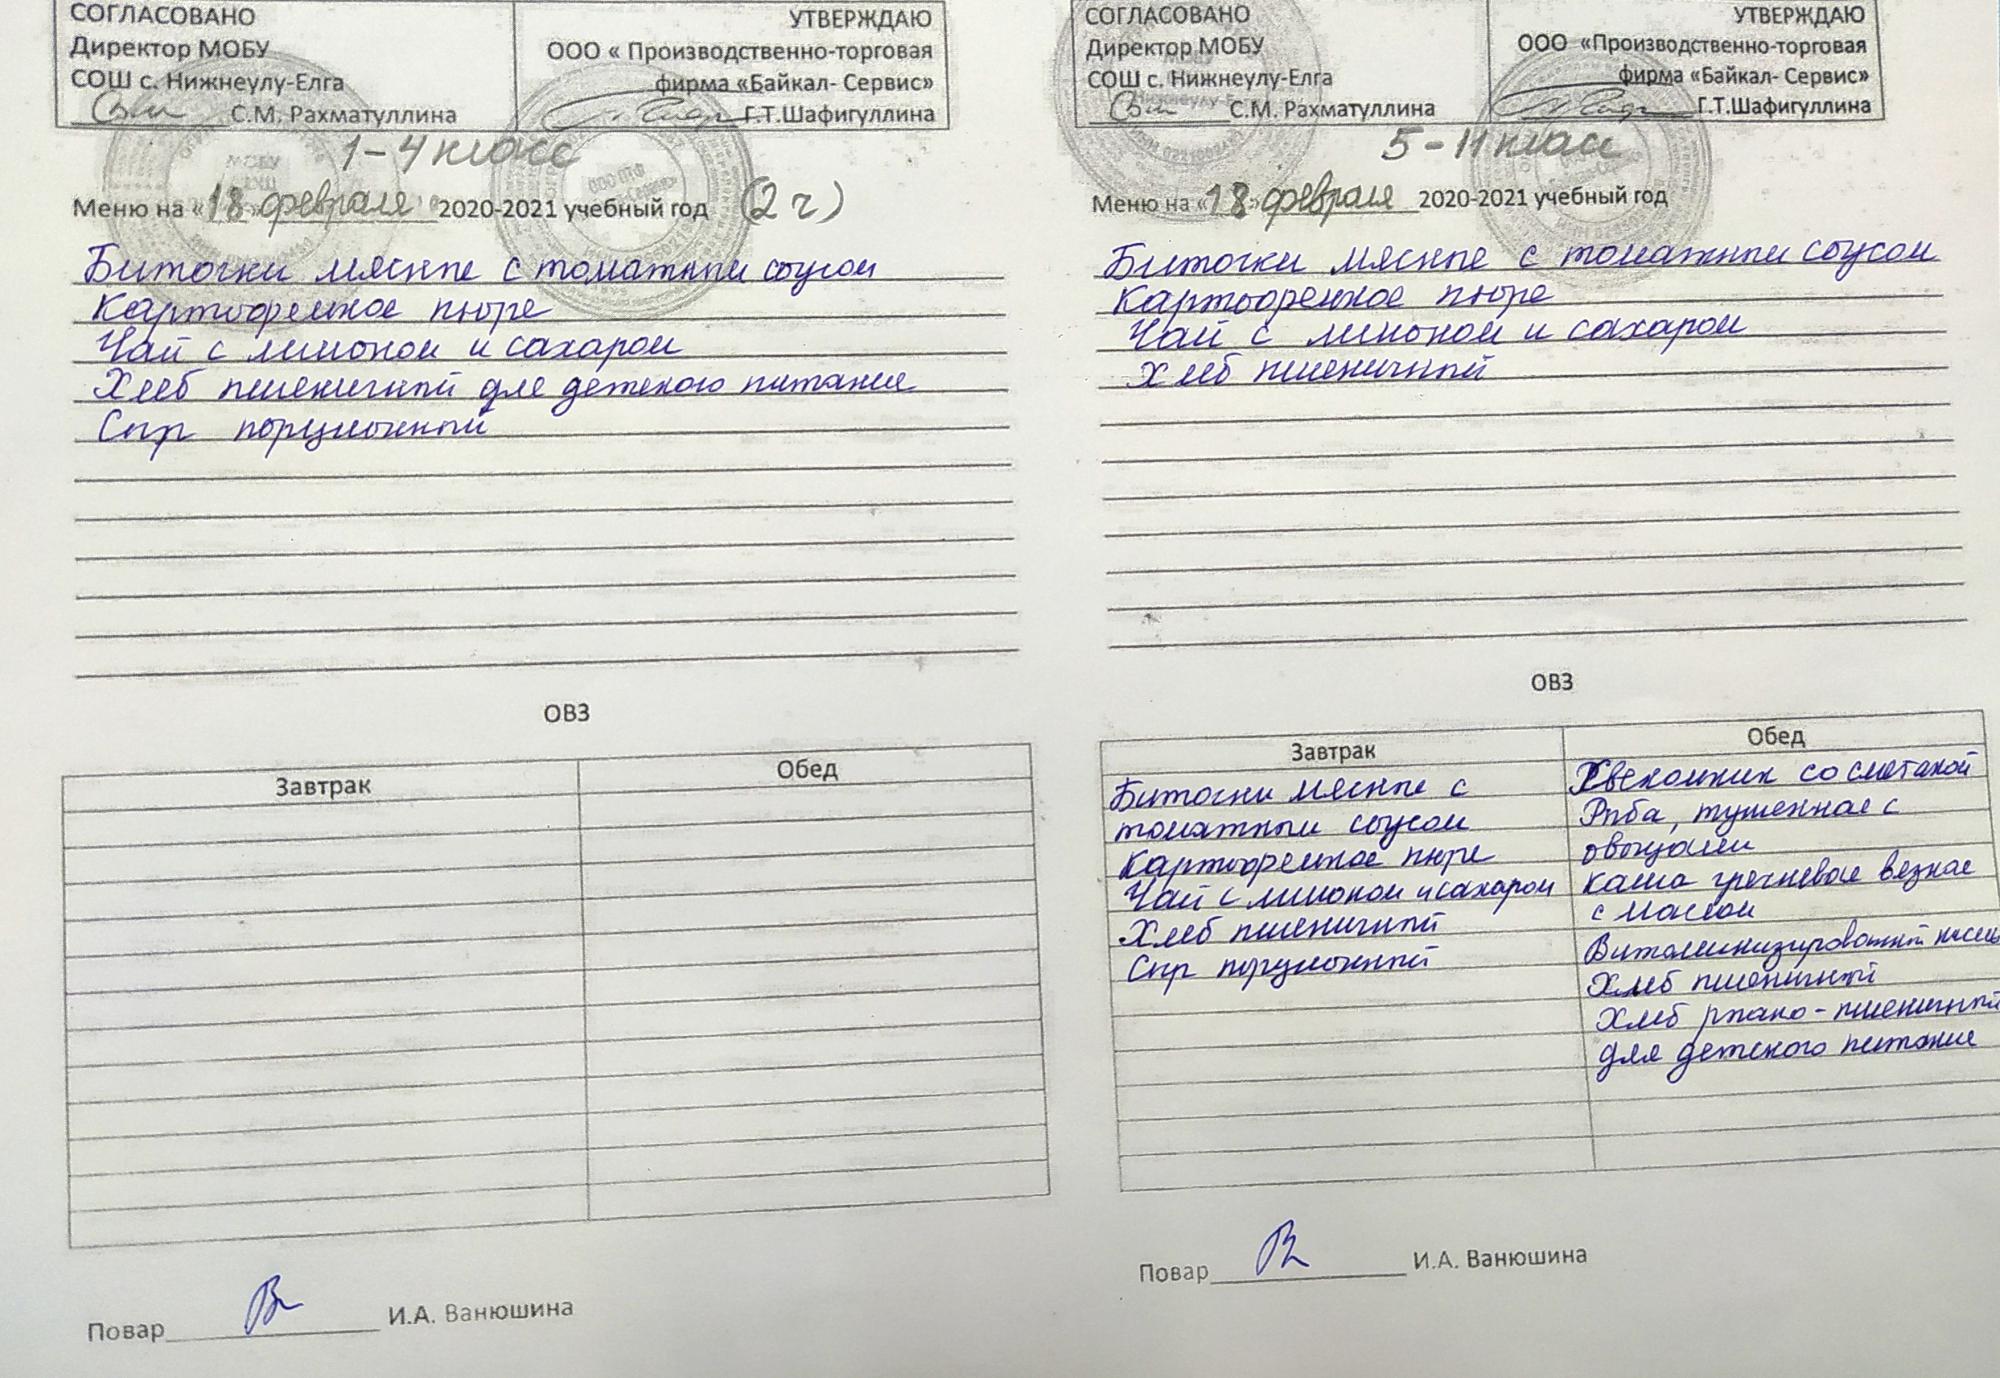 СОГЛАСОВАНО
Директор МОБУ
СОШ с. Нижнеулу-Елга
С.М. Рахматуллина
УТВЕРЖДАЮ
ООО « Производственно-торговая
фирма «Байкал- Сервис»
Г.Т.Шафигуллина
1-4 класс
Меню на «18» февраля 2020-2021 учебный год (2 г)
Биточки мясные с томатным соусом
Картофельное пюре
Чай с лимоном и сахаром
Хлеб пшеничный для детского питания
Сыр порционный
ОВЗ
Завтрак
Обед
Повар И.А. Ванюшина
СОГЛАСОВАНО
Директор МОБУ
СОШ с. Нижнеулу-Елга
С.М. Рахматуллина
УТВЕРЖДАЮ
ООО «Производственно-торговая
фирма «Байкал- Сервис»
Г.Т.Шафигуллина
5-11 класс
Меню на «18» февраля 2020-2021 учебный год
Биточки мясные с томатным соусом
Картофельное пюре
Чай с лимоном и сахаром
Хлеб пшеничный
ОВЗ
Завтрак
Биточки мясные с
томатным соусом
Картофельное пюре
Чай с лимоном и сахаром
Хлеб пшеничный
Сыр порционный
Обед
Свекольник со сметаной
Рыба, тушенная с
овощами
Каша гречневая вязкая
с маслом
Витаминизированный кисель
Хлеб пшеничный
Хлеб ржано-пшеничный
для детского питания
Повар И.А. Ванюшина